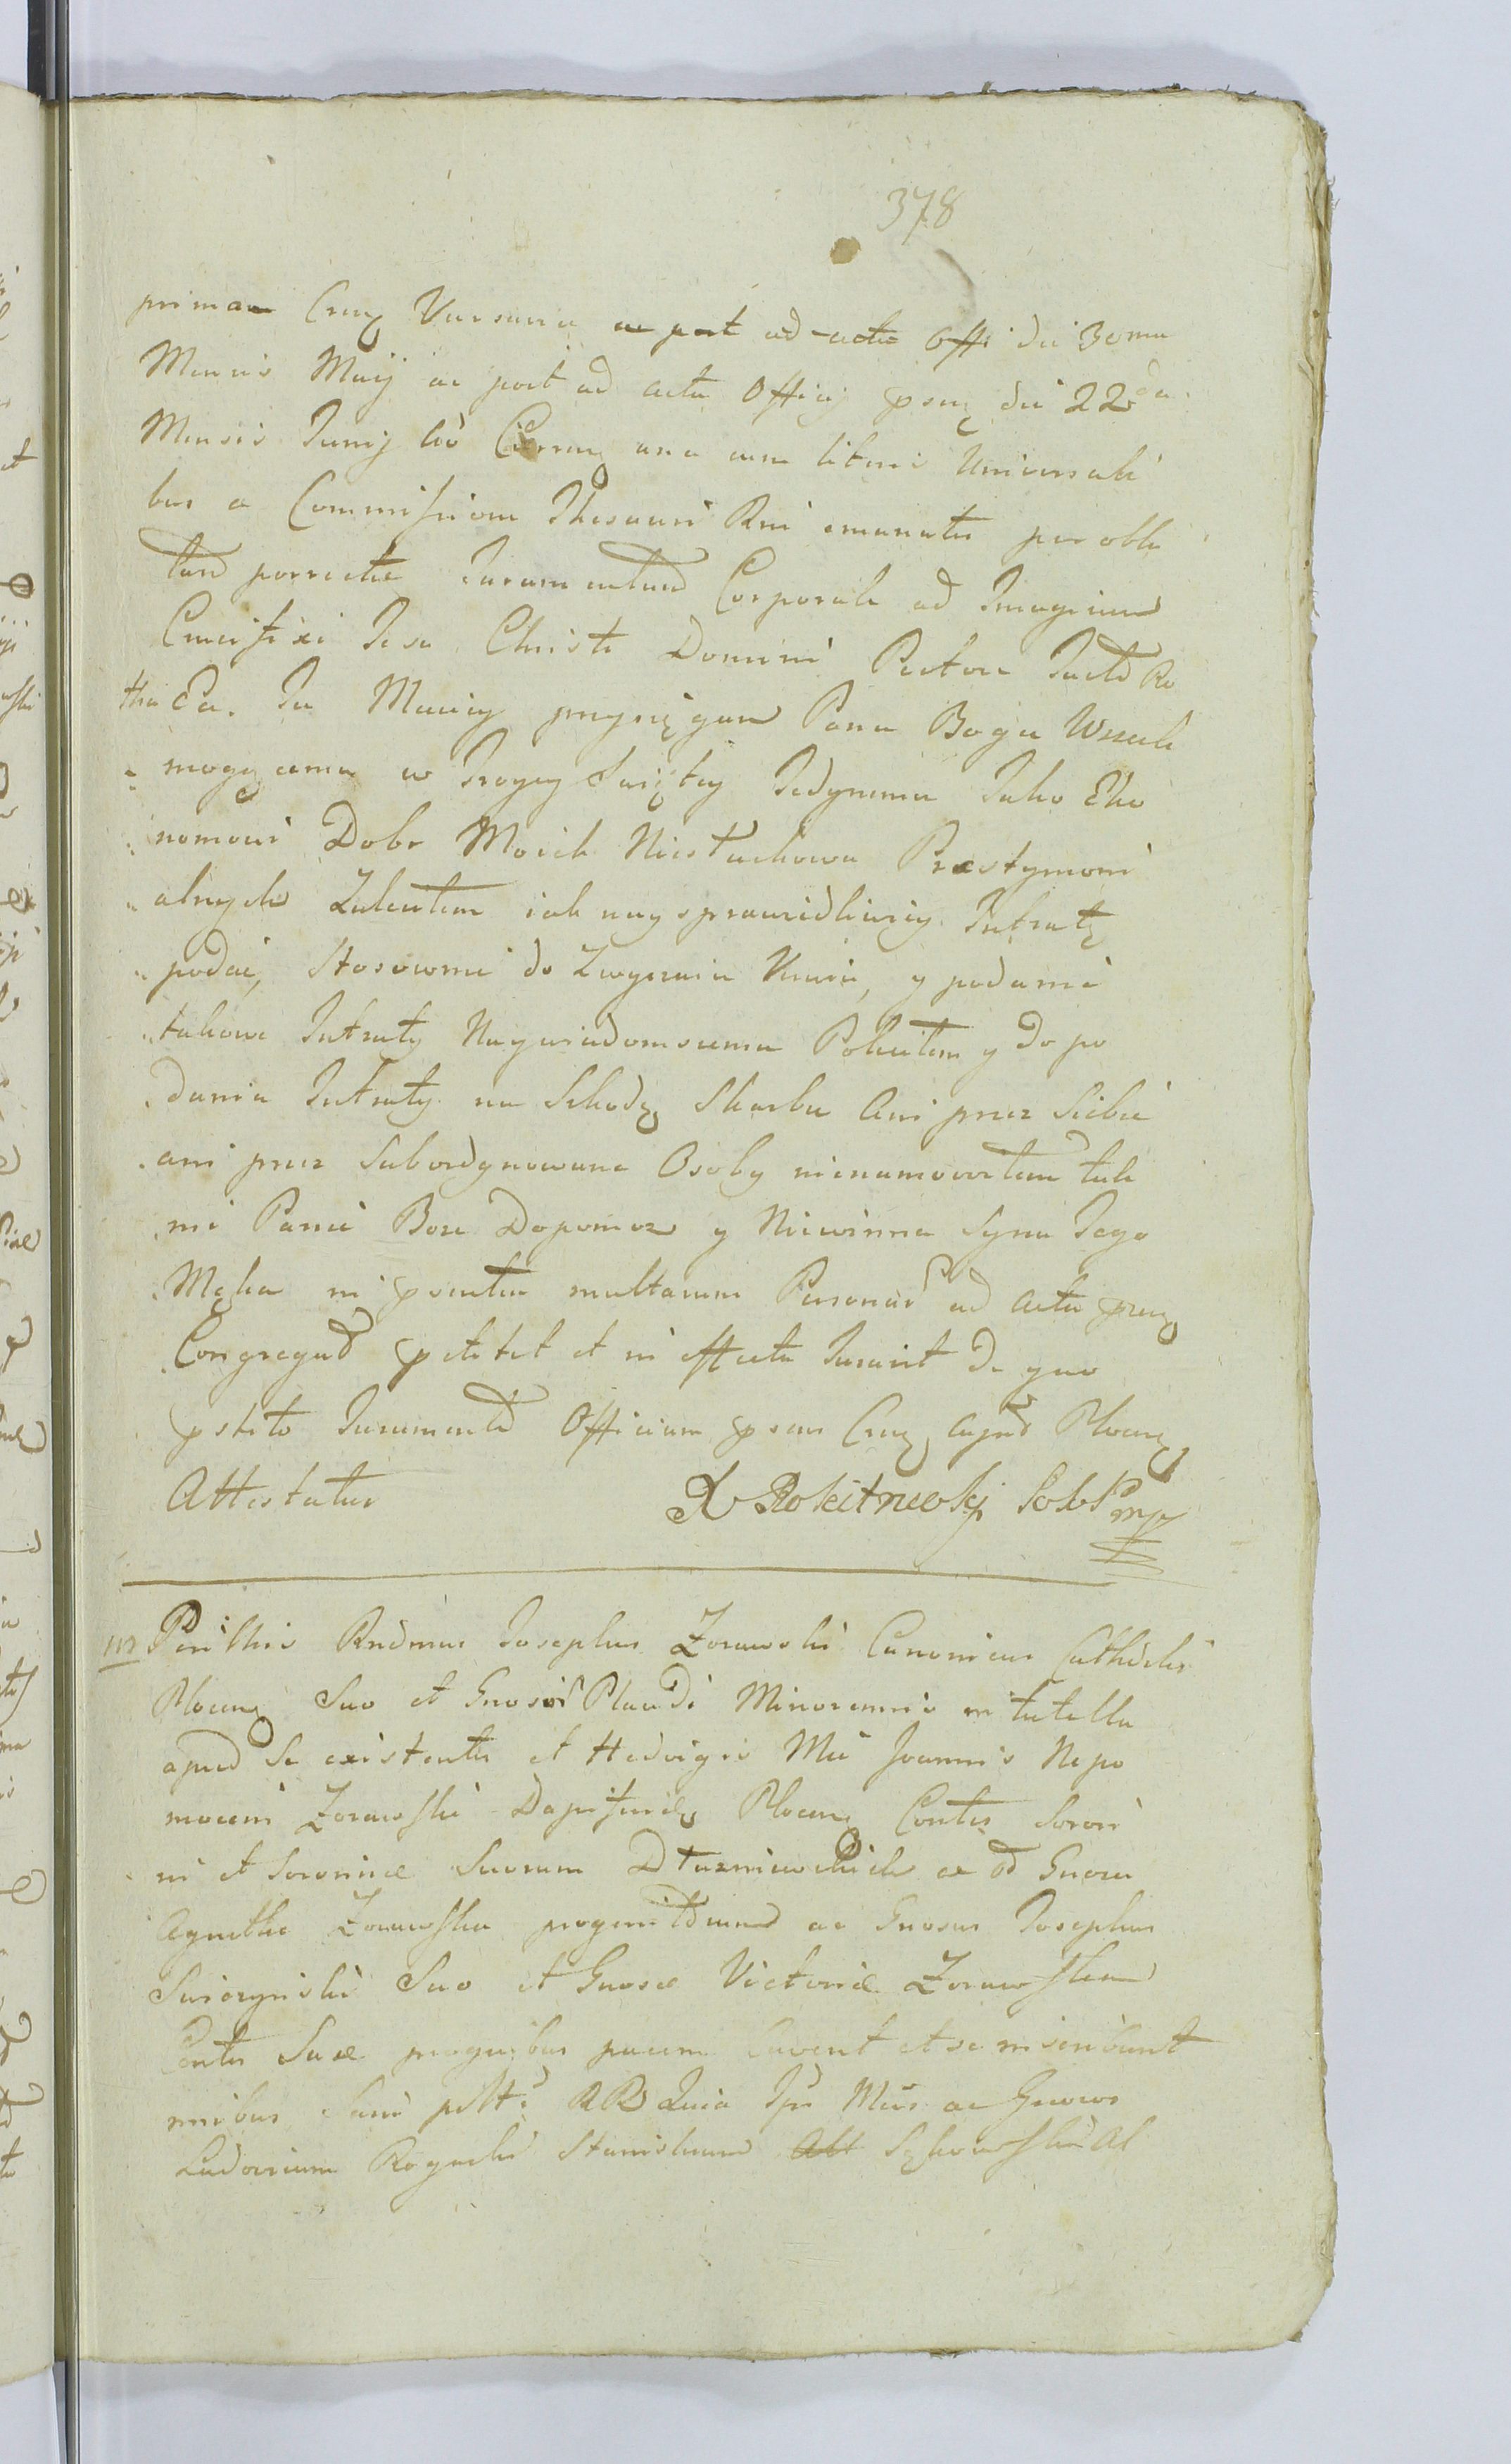 378
primam Cruę Varsavia ac post ad acta Offi die 30ma
Mensis Maij ac post ad acta Officij psnę die 22da
Mensis Junij una cum literis Universali
bus a Commissione Thesauri Rni emanatis per obla
tam porrectis Juramentum Corporale ad Imaginem
Crucifixi Jesu Christi Domini Pectore Ro
tha Ea. Ja Maciey przysięgam Panu Bogu Wszech
mogącemu w Troycy Swiętey Jedynemu Jako Eko
nomowi Dobr Moich Niestuchowa Præstymoni
alnych Zaleciłem iak naysprawiedliwiey Intratę
podać, stosownie do Zwyczaiu y podanie
takowe Intraty Naywiadomszemu Poleciłem y do po
dania Intraty na Szkodę Skarbu Ani przez Siebie
ani przez Subordynowane Osoby nienamowiłem tak
mi Panie Boze Dopomoz y Niewinna Syna Jego
Męka in psentia multarum Personar ad acta psnę
Congregat et in effectu Juravit De quo
pstito Juramento Officium psens Cruę Capit Plocenę
Attestatur X Rokitnicki
112 Perillris Rndmus Josephus Zorawski Canonicus Cathedralis
Plocenę Suo et Gnosi Placidi Minorennis in tutella
apud Se existentis et Hedvigis Mci Joannis Nepo
moceni Zorawski Dapiferidę Plocenę Contis Sorori
ni et Sororinæ Suorum ac Gnosa
Agnetha Zorawska ac Gnosus Josephus
Swierzynski Suo et Gnosæ Victoriæ Zorawskam
Contis Suæ pacem Cavent et se inscribunt
RR Quia Mcis ac Gnosos
Ludovicum Rogacki Stanislaum Al